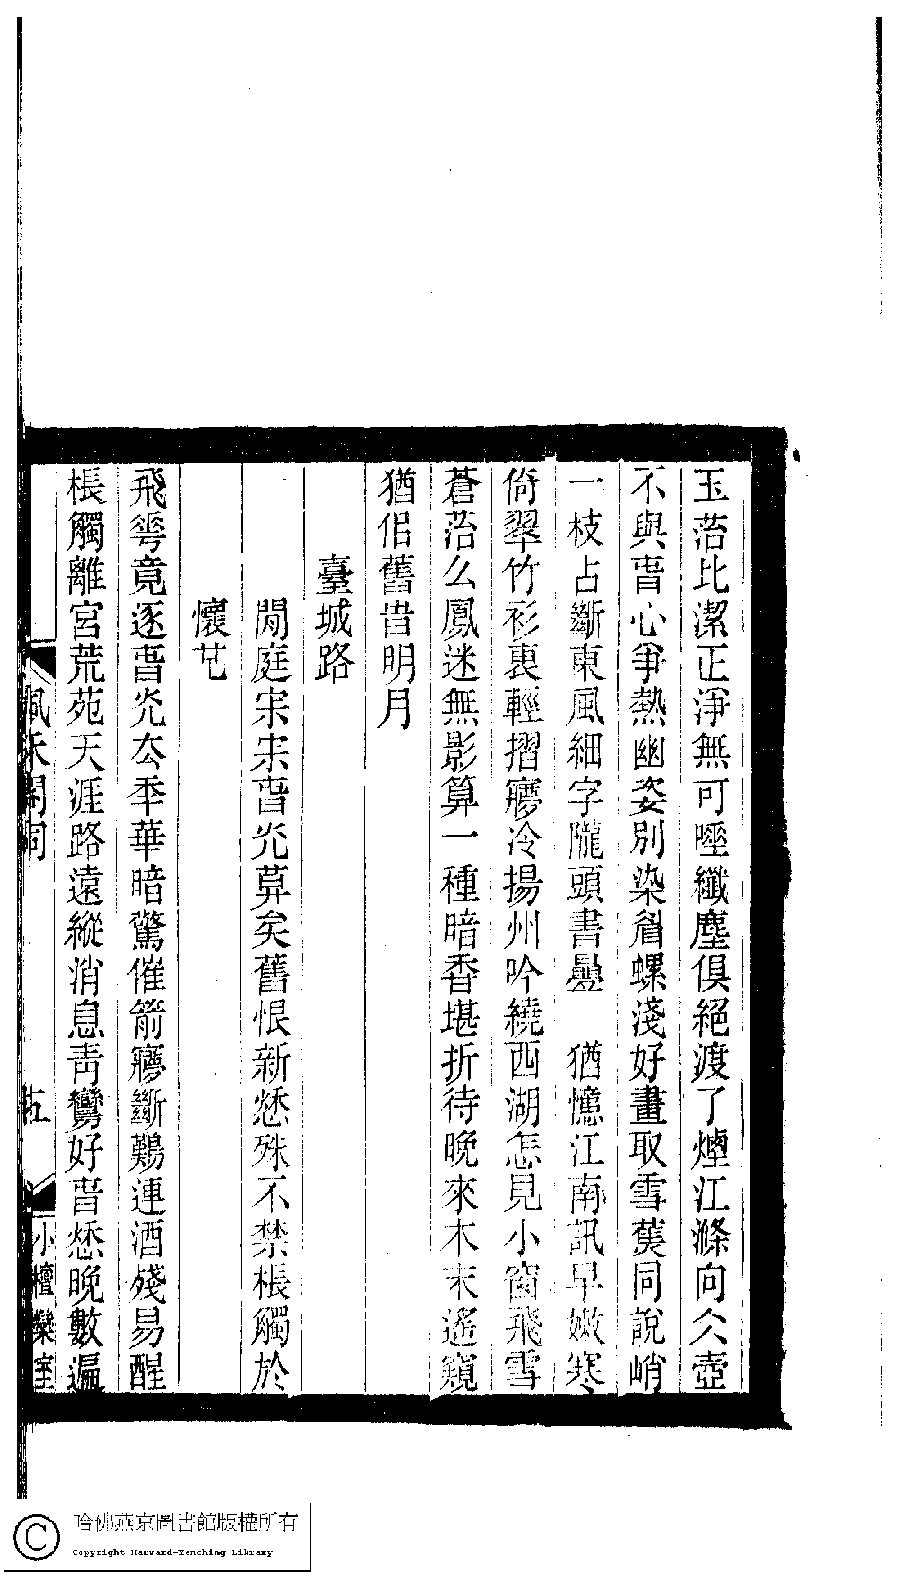 玉菭比潔正淨無可唾纖塵俱絕渡了煙江滌向久壺
不與旾心爭熱幽姿別染眉螺淺好畫取雪蕤同說峭
一枝占斷東風細字隴頭書疊　猶憶江南訊早嫩寒
倚翠竹衫裏輕摺㝱冷揚州吟繞西湖怎見小窗飛雪
蒼菭么鳳迷無影算一種暗香堪折待晚來木末遙窺
猶佀舊昔明月
臺城路
閒庭宋宋旾光莫矣舊恨新愁殊不禁棖觸於
懷也
飛雩竟逐旾光去秊華暗驚催箭㝱斷鷄連酒殘易醒
棖觸離宮荒苑天涯路遠縱消息靑鸞好音愁晚數遍
小檀欒室
哈佛燕京圖書館版權所有
Copyright Harvard-Yenching Library